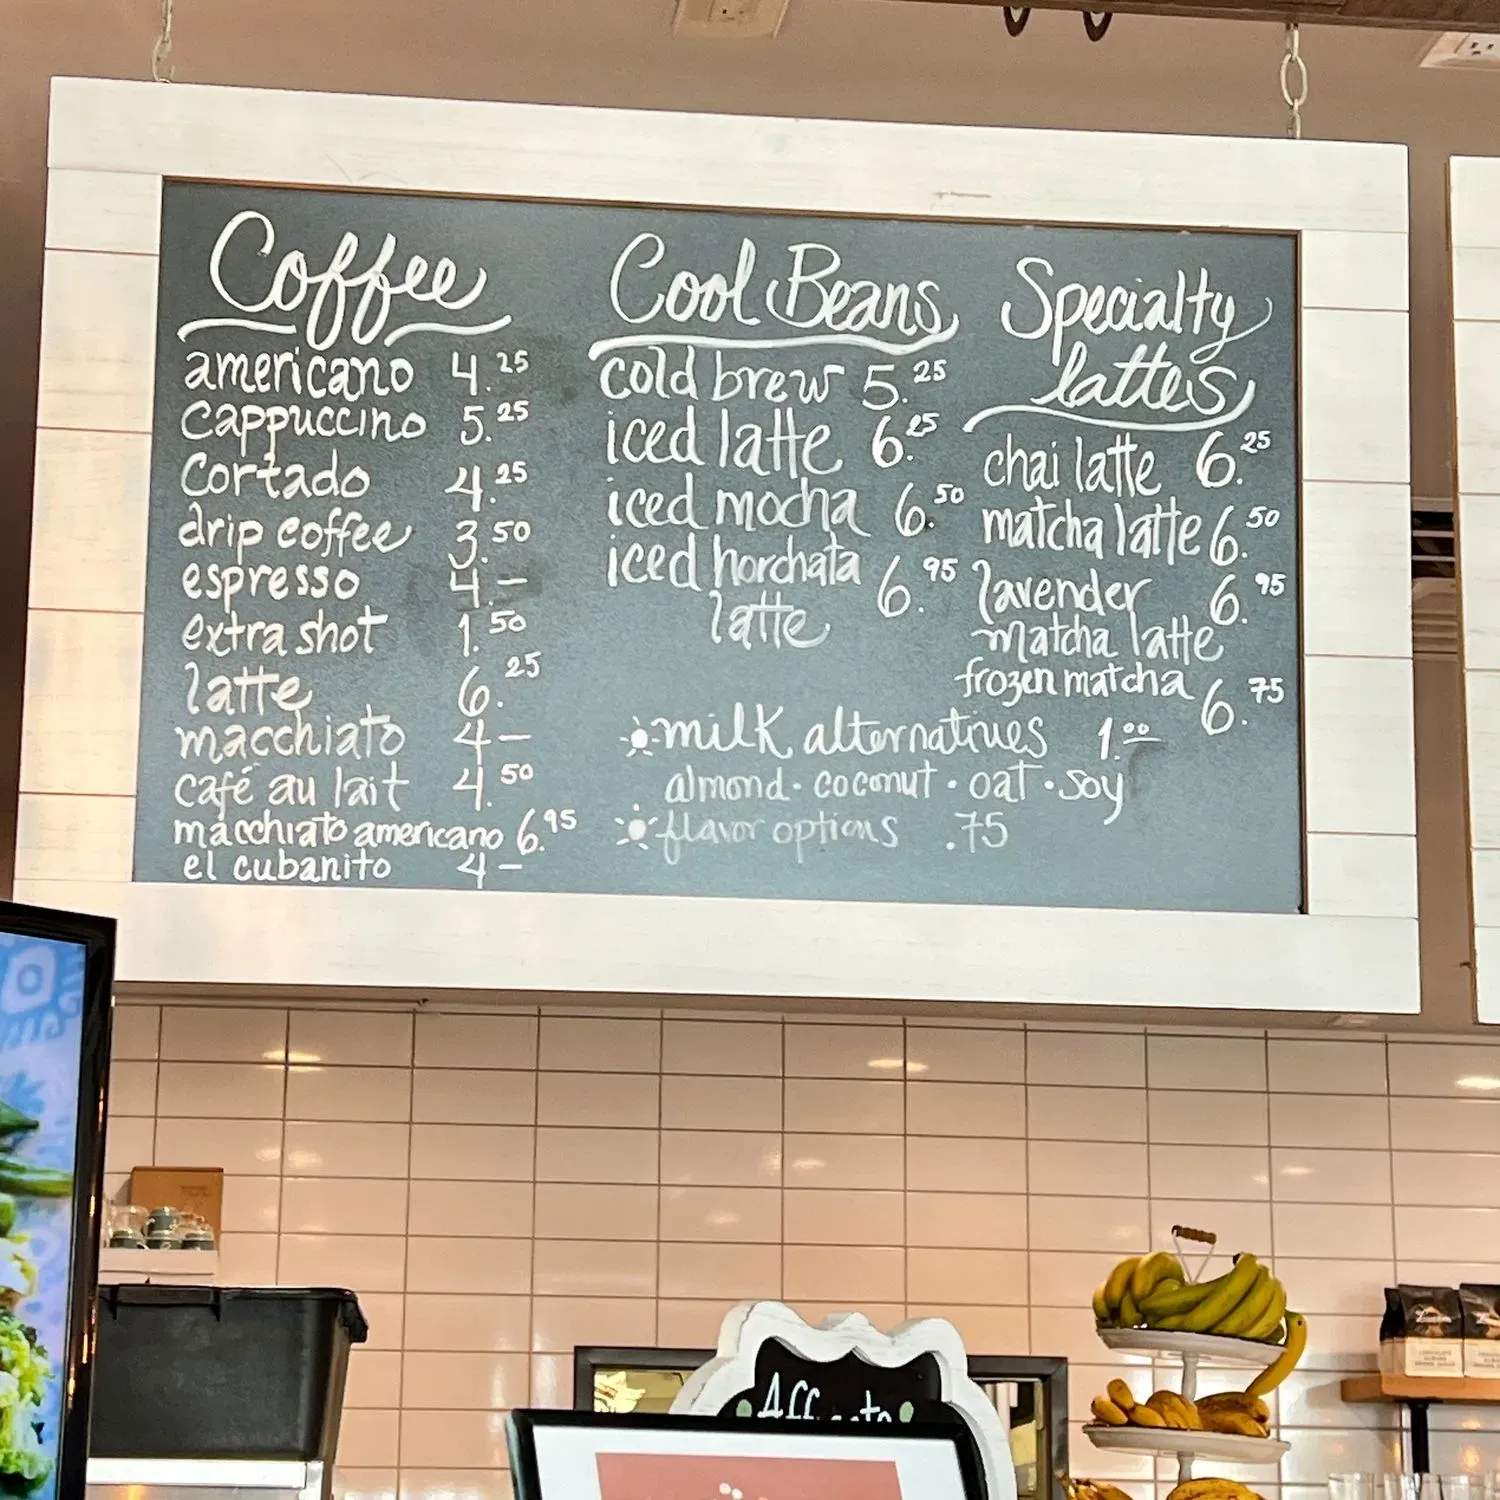 Coffee
americano 4.25
cappuccino 5.25
cortado 4.25
drip coffee 3.50
espresso 4.—
extra shot 1.50
latte 6.25
macchiato 4—
café au lait 4.50
macchiato americano 6.95
el cubanito 4—
Cool Beans
cold brew 5.25
iced latte 6.25
iced mocha 6.50
iced horchata 6.95
latte
Specialty
lattes
chai latte 6.25
matcha latte 6.50
lavender 6.95
matcha latte
frozen matcha 6.75
milk alternatives 1.00
almond · coconut · oat · soy
flavor options .75